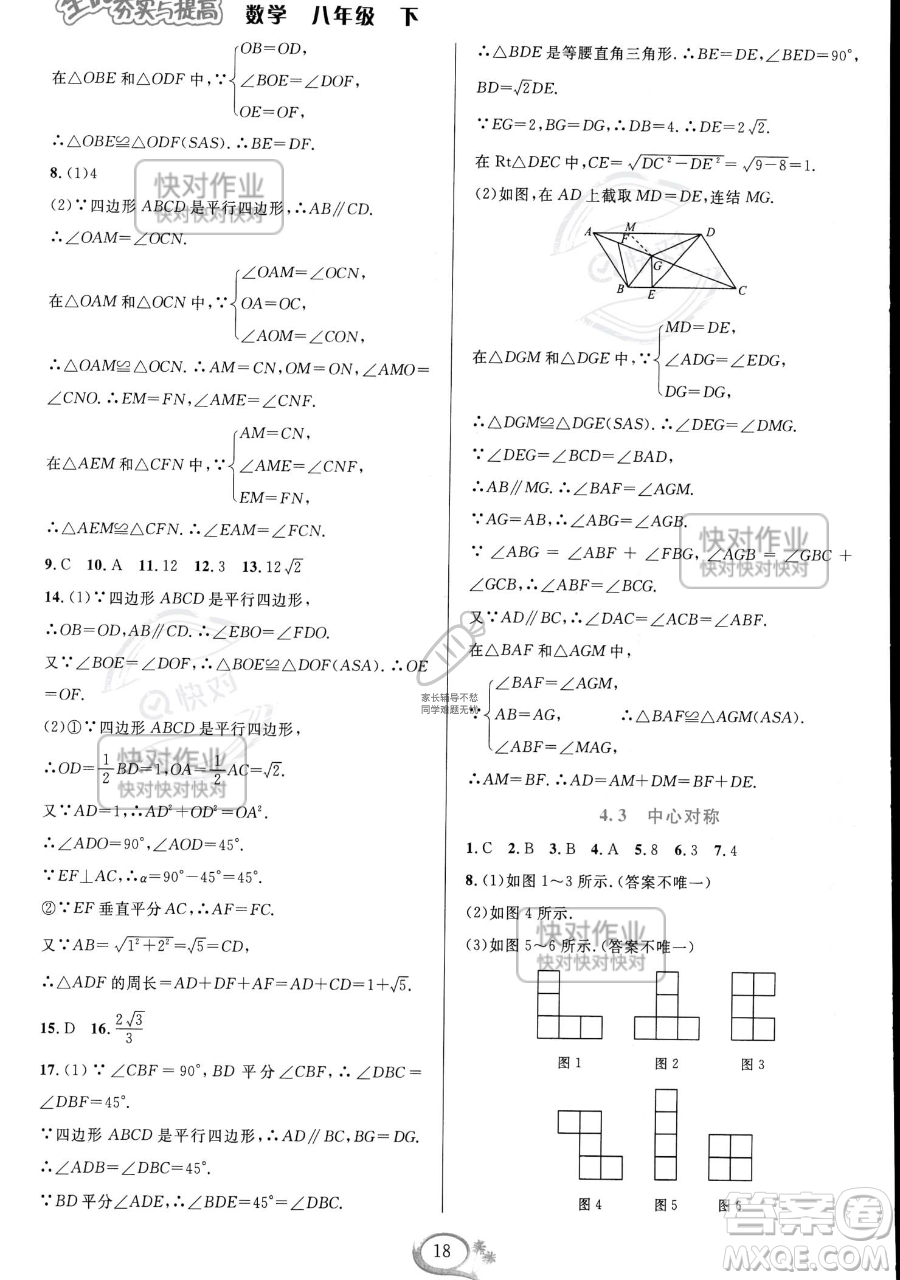 全品 夯实与提高 数学 八年级 下
在△OBE 和△ODF 中,∵{OB=OD,
∠BOE=∠DOF,
OE=OF,
∴△OBE≌△ODF(SAS). ∴BE=DF.
8. (1)4
(2)∵四边形 ABCD 是平行四边形,∴AB∥CD.
∴∠OAM=∠OCN.
在△OAM 和△OCN 中,∵{∠OAM=∠OCN,
OA=OC,
∠AOM=∠CON,
∴△OAM≌△OCN. ∴AM=CN,OM=ON,∠AMO=
∠CNO. ∴EM=FN,∠AME=∠CNF.
在△AEM 和△CFN 中,∵{AM=CN,
∠AME=∠CNF,
EM=FN,
∴△AEM≌△CFN. ∴∠EAM=∠FCN.
9. C 10. A 11. 12 12. 3 13. 12√2
14. (1)∵四边形 ABCD 是平行四边形,
∴OB=OD,AB∥CD. ∴∠EBO=∠FDO.
又∵∠BOE=∠DOF,∴△BOE≌△DOF(ASA). ∴OE
=OF.
(2)①∵四边形 ABCD 是平行四边形,
∴OD=1/2 BD=1,OA=1/2 AC=√2.
又∵AD=1,∴AD²+OD²=OA².
∴∠ADO=90°,∠AOD=45°.
∵EF⊥AC,∴α=90°-45°=45°.
②∵EF 垂直平分 AC,∴AF=FC.
又∵AB=√(1²+2²)=√5=CD,
∴△ADF 的周长=AD+DF+AF=AD+CD=1+√5.
15. D 16. 2√3/3
17. (1)∵∠CBF=90°,BD 平分∠CBF,∴∠DBC=
∠DBF=45°.
∵四边形 ABCD 是平行四边形,∴AD∥BC,BG=DG.
∴∠ADB=∠DBC=45°.
∵BD 平分∠ADE,∴∠BDE=45°=∠DBC.
∴△BDE 是等腰直角三角形. ∴BE=DE,∠BED=90°,
BD=√2DE.
∵EG=2,BG=DG,∴BD=4. ∴DE=2√2.
在 Rt△DEC 中,CE=√(DC²-DE²)=√(9-8)=1.
(2)如图,在 AD 上截取 MD=DE,连结 MG.
A M D
F
G
B E C
在△DGM 和△DGE 中,∵{MD=DE,
∠ADG=∠EDG,
DG=DG,
∴△DGM≌△DGE(SAS). ∴∠DEG=∠DMG.
∵∠DEG=∠BCD=∠BAD.
∴AB∥MG. ∴∠BAF=∠AGM.
∵AG=AB,∴∠ABG=∠AGB.
∵∠ABG=∠ABF+∠FBG,∠AGB=∠GBC+
∠GCB,∴∠ABF=∠BCG.
又∵AD∥BC,∴∠DAC=∠BCA=∠ABF.
在△BAF 和△AGM 中,
∵{∠BAF=∠AGM,
AB=AG, ∴△BAF≌△AGM(ASA).
∠ABF=∠MAG,
∴AM=BF. ∴AD=AM+DM=BF+DE.
4.3 中心对称
1. C 2. B 3. B 4. A 5. 8 6. 3 7. 4
8. (1)如图 1~3 所示.(答案不唯一)
(2)如图 4 所示.
(3)如图 5~6 所示.(答案不唯一)
图 1 图 2 图 3
图 4 图 5 图 6
18
快对作业
快对快对快对
快对
快对作业
快对快对快对
快对
快对作业
快对快对快对
快对作业
快对快对快对
家长辅导不愁
同学难题无忧
答案圈
MXQE.COM